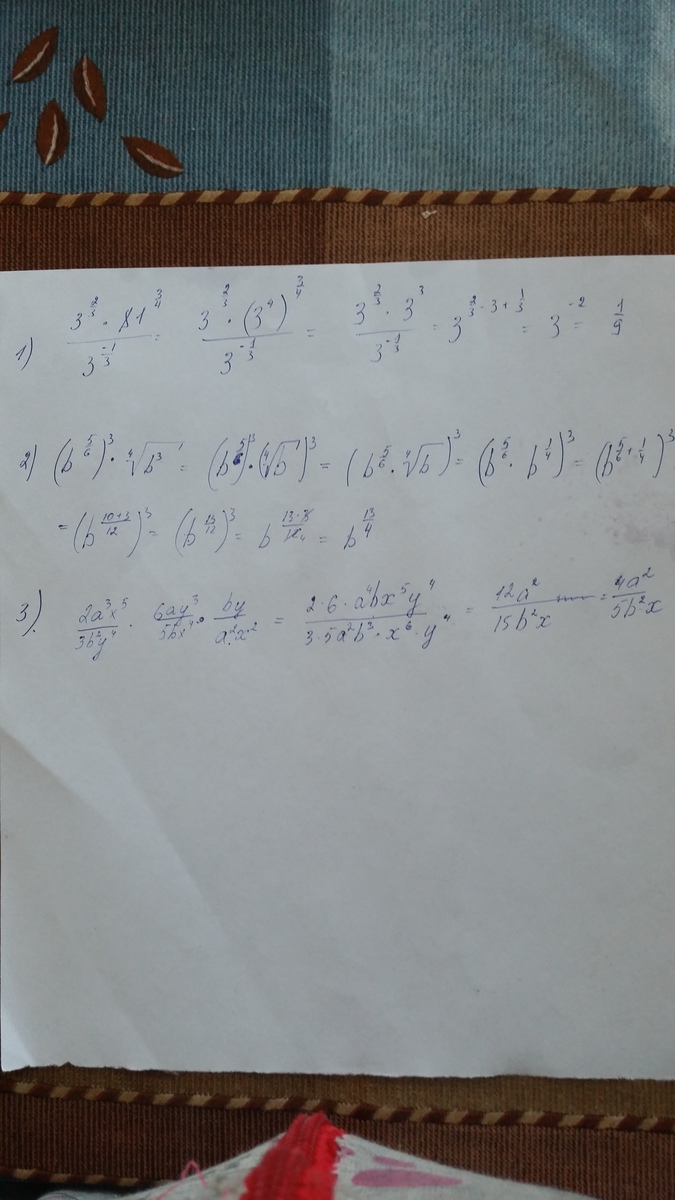 1) (3^(2/3) · 81^(3/4)) / 3^(-1/3) = (3^(2/3) · (3^4)^(3/4)) / 3^(-1/3) = (3^(2/3) · 3^3) / 3^(-1/3) = 3^(2/3 - 3 + 1/3) = 3^(-2) = 1/9
2) (b^(5/6))^3 · ∜b^3 = (b^(5/6))^3 · (∜b)^3 = (b^(5/6) · ∜b)^3 = (b^(5/6) · b^(1/4))^3 = (b^(5/6 + 1/4))^3
= (b^((10+3)/12))^3 = (b^(13/12))^3 = b^((13·3)/12 4) = b^(13/4)
3) 2a^3x^5/3b^2y^4 · 6ay^3/5bx^4 · by/a^2x^2 = (2·6·a^4bx^5y^4)/(3·5a^2b^3·x^6·y^4) = 12a^2/15b^2x = 4a^2/5b^2x